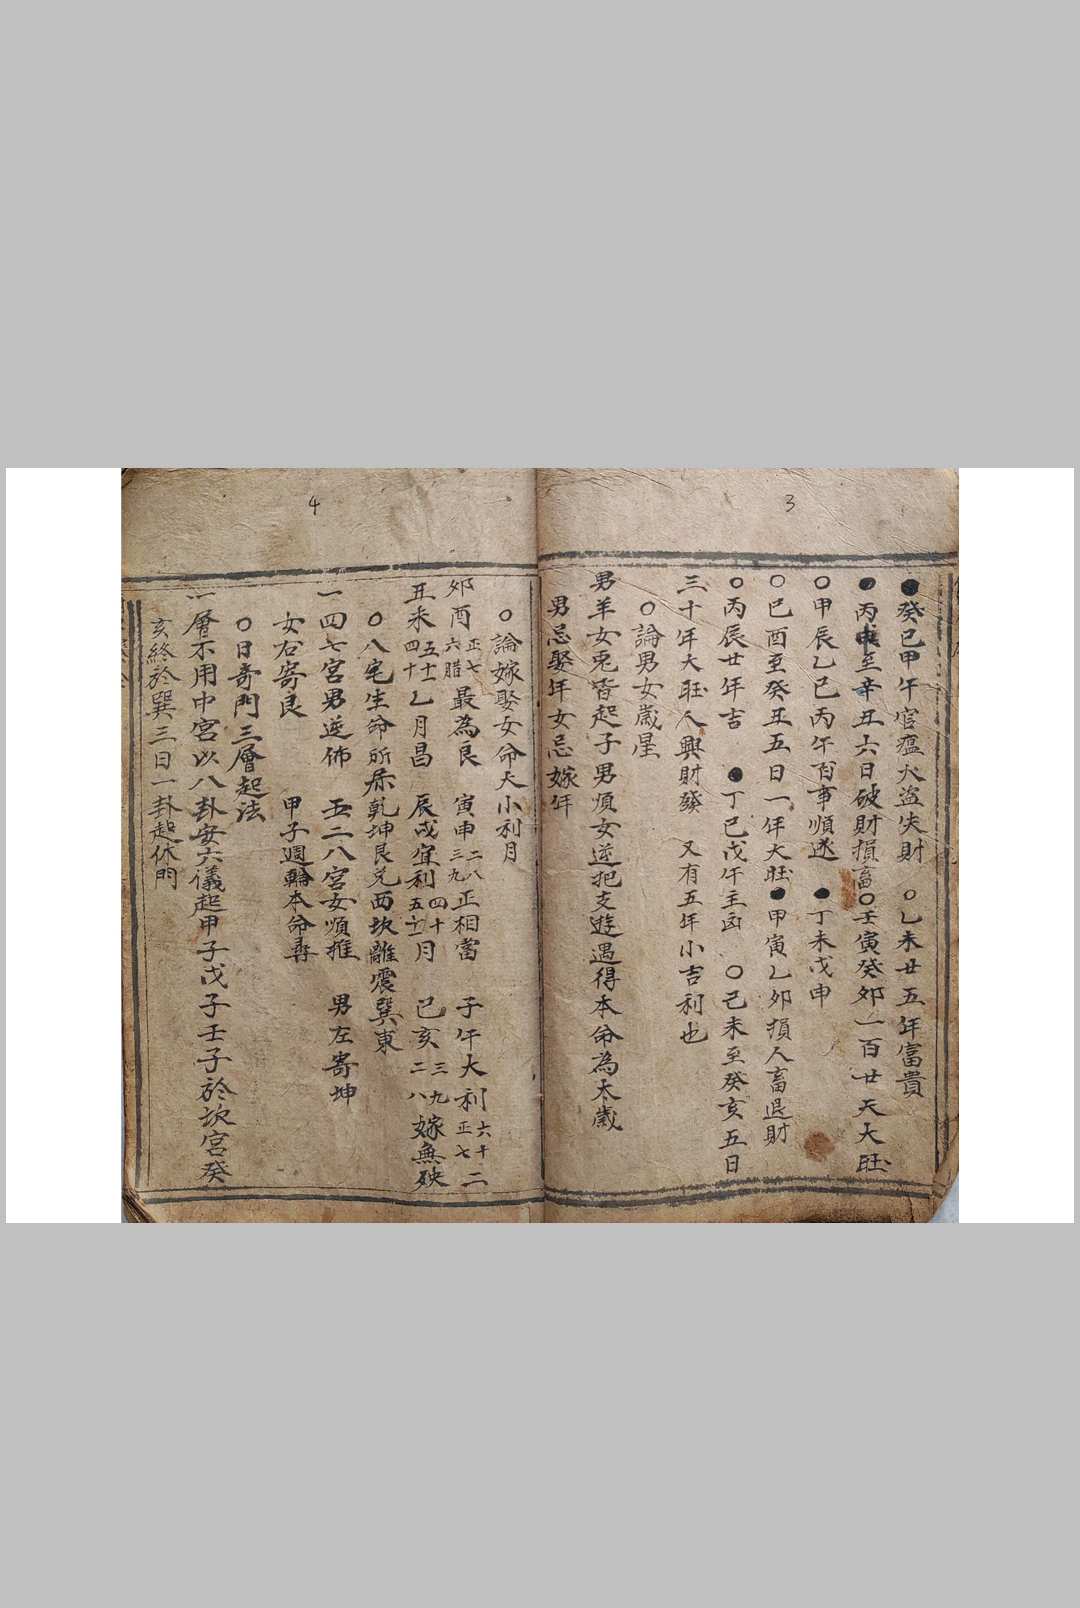 3
●癸巳甲午官瘟火盜失財　○乙未廿五年富貴
●丙申至辛丑六日破財損畜○壬寅癸卯一百廿天大旺
○甲辰乙巳丙午百事順遂　●丁未戊申
○己酉至癸丑五日一年大旺●甲寅乙卯損人畜退財
○丙辰廿年吉　●丁巳戊午主凶　○己未至癸亥五日
三十年大旺人興財發　又有五年小吉利也
○論男女歲星
男羊女兎皆起子男順女逆把支遊遇得本命為太歲
男忌娶年女忌嫁年
4
○論嫁娶女命天小利月
卯酉正七六腊最為良　寅申二八三九正相當　子午大利六十二正七
丑未五十一四十乙月昌　辰戌宜利四十五十一月　己亥三九二八嫁無殃
○八宅生命所屬乾坤艮兌西坎離震巽東
一四七宮男逆佈　五二八宮女順推　男左寄坤
女右寄艮　甲子週輪本命尋
○日奇門三層起法
一層不用中宮以八卦安六儀起甲子戊子壬子於坎宮癸
亥終於巽三日一卦起休門